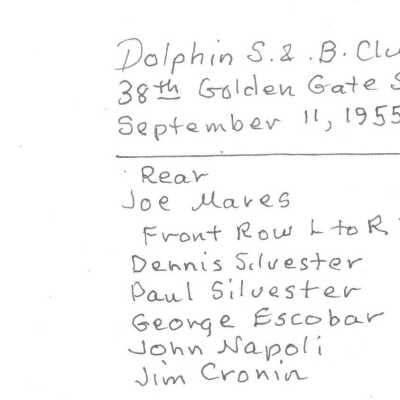 Dolphin S. & .B. Clu
38th Golden Gate S
September 11, 1955
Rear
Joe Mares
Front Row L to R
Dennis Silvester
Paul Silvester
George Escobar
John Napoli
Jim Cronin